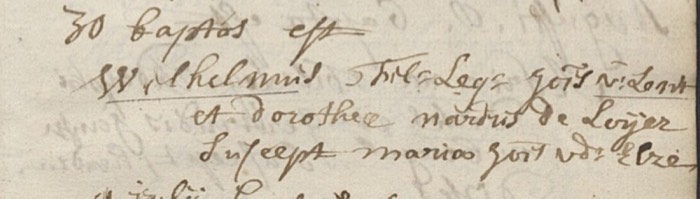 30 baptos est
Wilhelmus fil: Leg: Jois v: Lent
et Dorothee nardus de Loijer
Suscept maria Jois vdr